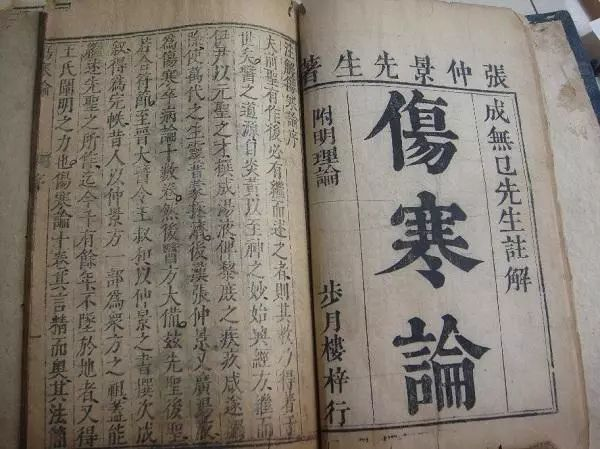 張仲景先生著
成無已先生註解
傷寒論
附明理論
步月樓梓行
注解傷寒論序
夫前聖有作後必有繼而述之者則其教乃得著于
世矣醫之道源自炎黃以至神之妙始興經方繼而
伊尹以元聖之才撰成湯液俾黎庶之疾疚咸遂蠲
除使萬代之生靈普蒙拯濟後漢張仲景又廣湯液
為傷寒卒病論十數卷然後醫方大備茲先聖後聖
若合符節至晉太醫令王叔和以仲景之書撰次成
敘得為完帙昔人以仲景方一部為衆方之祖蓋能
繼述先聖之所作迄今千有餘年不墜於地者又得
王氏闡明之力也傷寒論十卷其言精而奧其法簡
傷寒論